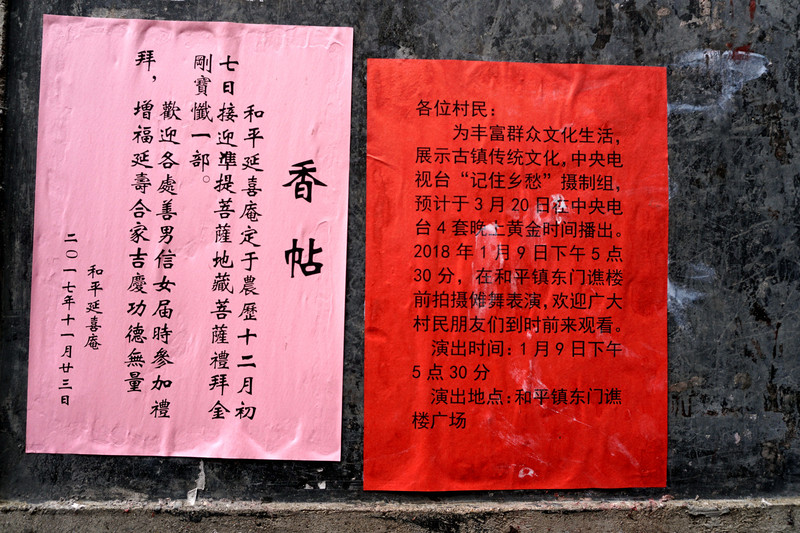 香帖
和平延喜庵定于農歷十二月初
七日接迎準提菩薩地藏菩薩禮拜金
剛寶懺一部。
歡迎各處善男信女届時參加禮
拜，增福延壽合家吉慶功德無量
和平延喜庵
二〇一七年十一月廿三日
各位村民：
为丰富群众文化生活，
展示古镇传统文化，中央电
视台“记住乡愁”摄制组，
预计于3月20日在中央电
台4套晚上黄金时间播出。
2018年1月9日下午5点
30分，在和平镇东门谯楼
前拍摄傩舞表演，欢迎广大
村民朋友们到时前来观看。
演出时间：1月9日下午
5点30分
演出地点：和平镇东门谯
楼广场